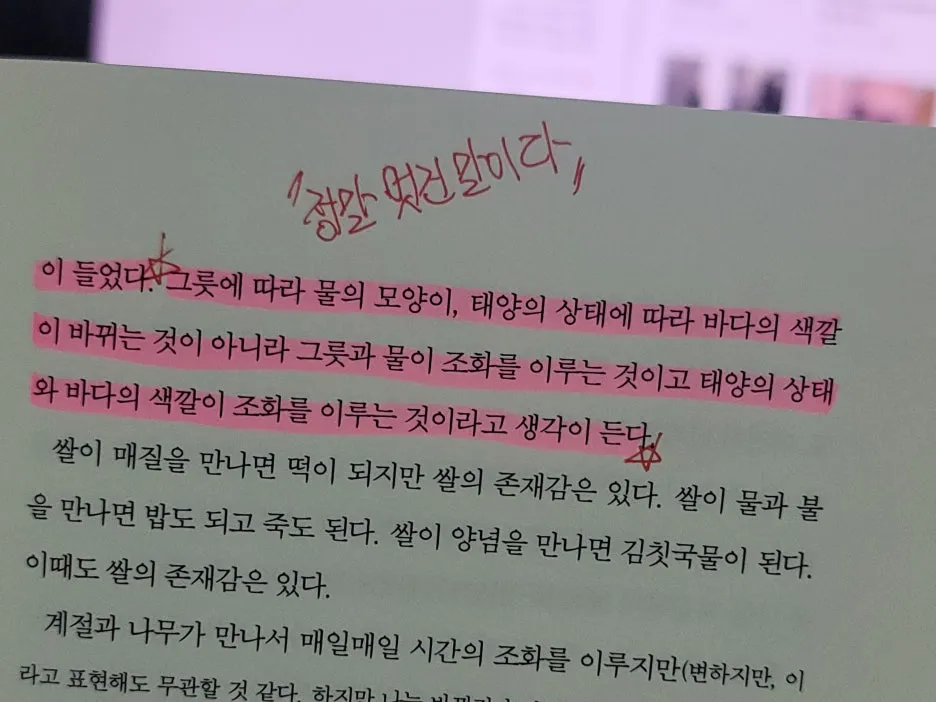 "정말 멋진 말이다"
이 들었다. 그릇에 따라 물의 모양이, 태양의 상태에 따라 바다의 색깔
이 바뀌는 것이 아니라 그릇과 물이 조화를 이루는 것이고 태양의 상태
와 바다의 색깔이 조화를 이루는 것이라고 생각이 든다.
쌀이 매질을 만나면 떡이 되지만 쌀의 존재감은 있다. 쌀이 물과 불
을 만나면 밥도 되고 죽도 된다. 쌀이 양념을 만나면 김칫국물이 된다.
이때도 쌀의 존재감은 있다.
계절과 나무가 만나서 매일매일 시간의 조화를 이루지만(변하지만, 이
라고 표현해도 무관할 것 같다. 하지만 나는